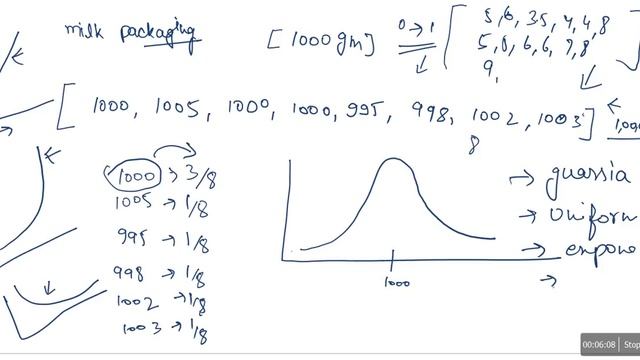 milk packaging
[1000 gm]
0 → 1
5, 6, 35, 4, 4, 8
5, 6, 6, 6, 7, 8
9,
[1000, 1005, 1000, 1000, 995, 998, 1002, 1003]
8
1000 → 3/8
1005 → 1/8
995 → 1/8
998 → 1/8
1002 → 1/8
1003 → 1/8
1000
→ guassia
→ Uniform
→ expone
→
00:06:08 Stop